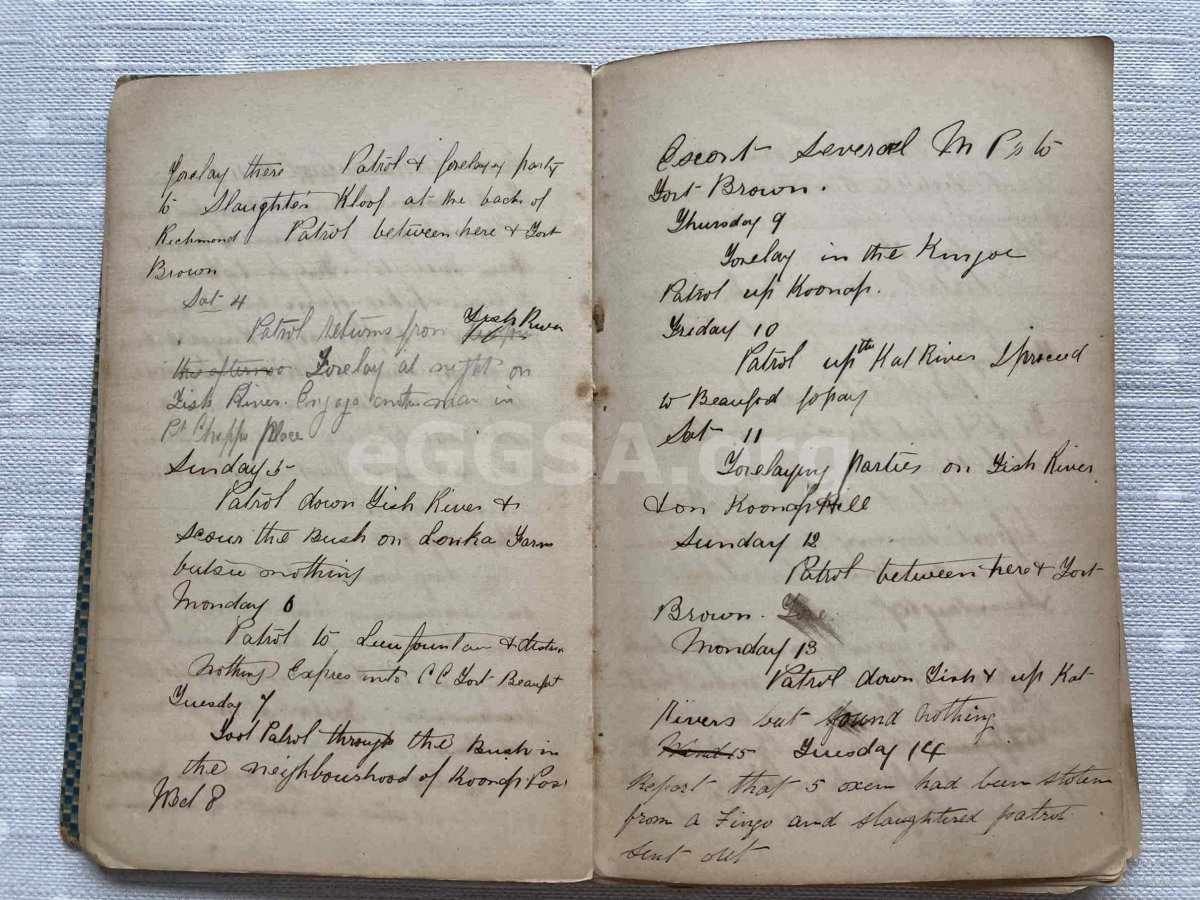 Forelay there Patrol & forelay party
to Slaughter's Kloof at the back of
Richmond Patrol between here & Fort
Brown
Sat 4
Patrol returns from Fish River
the afternoo Forelay at night on
Fish River. Engage another man in
Pt Chipps place
Sunday 5
Patrol down Fish River &
scour the Bush on Lonka Farm
but see nothing
Monday 6
Patrol to Leeufountain &
nothing Express into CC Fort Beaufort
Tuesday 7
Foot Patrol through the Bush in
the neighbourshood of Koonap Post
Wed 8
Escort several M P's to
Fort Brown.
Thursday 9
Forelay in the Kingoe
Patrol up Koonap.
Friday 10
Patrol up the Kat River I proceed
to Beaufod for pay
Sat 11
Forelaying parties on Fish River
& on Koonap Hill
Sunday 12
Patrol between here & Fort
Brown. Fore
Monday 13
Patrol down Fish & up Kat
Rivers but found nothing
Wend 15 Tuesday 14
Report that 5 oxen had been stolen
from a Fingo and slaughtered patrol
sent out
eGGSA.org